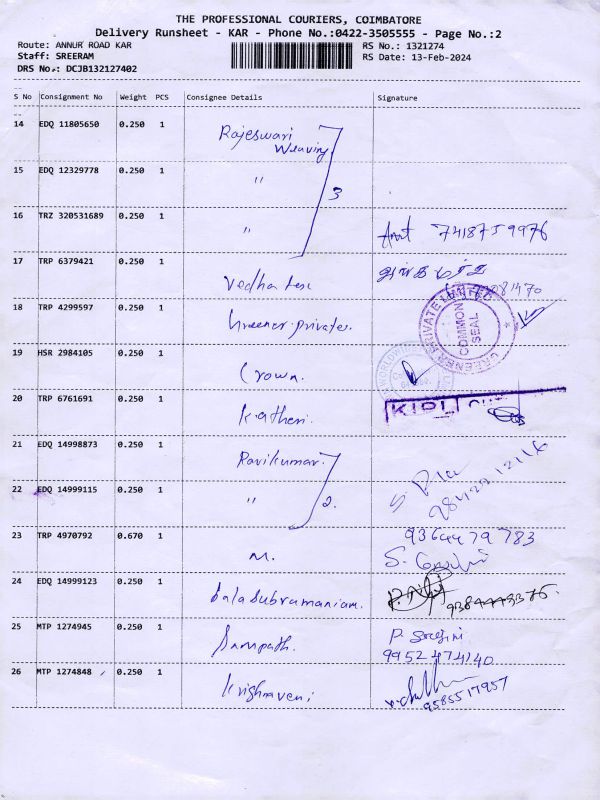 THE PROFESSIONAL COURIERS, COIMBATORE
Delivery Runsheet - KAR - Phone No.:0422-3505555 - Page No.:2
Route: ANNUR ROAD KAR
RS No.: 1321274
Staff: SREERAM
RS Date: 13-Feb-2024
DRS No.: DCJB132127402
S No Consignment No Weight PCS Consignee Details Signature
14 EDQ 11805650 0.250 1 Rajeswari
Weaving
15 EDQ 12329778 0.250 1 "
3
16 TRZ 320531689 0.250 1 " 7418759976
17 TRP 6379421 0.250 1
18 TRP 4299597 0.250 1 Greener private.
GREENBA PRIVATE LIMITED
COMMON SEAL
19 HSR 2984105 0.250 1 Crown.
20 TRP 6761691 0.250 1 Katheri.
21 EDQ 14998873 0.250 1 Ravikumar.
22 EDQ 14999115 0.250 1 " 2.
23 TRP 4970792 0.670 1 M. 9364479783
24 EDQ 14999123 0.250 1 Balasubramaniam.
25 MTP 1274945 0.250 1 Sampath.
9952474140
26 MTP 1274848 0.250 1 Krishnaveni
9585517957